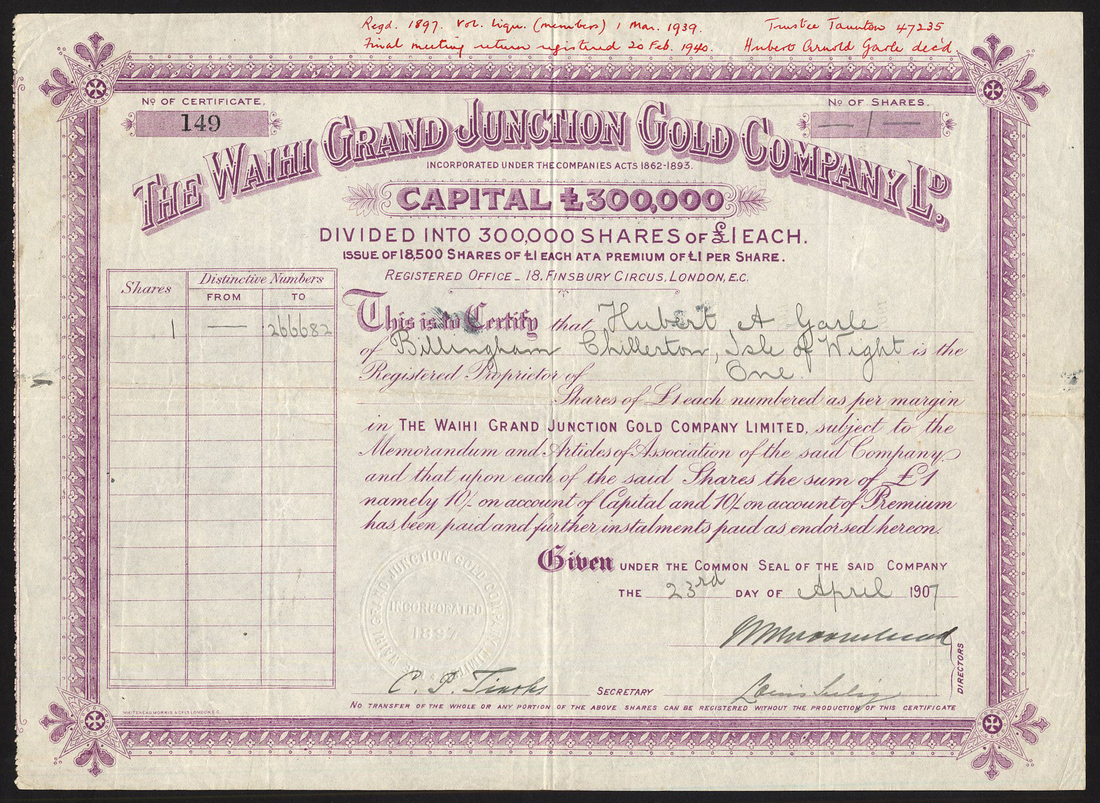 Regd. 1897. Vol. Liqu. (members) 1 Mar. 1939.
Final meeting return registered 20 Feb. 1940.
Trustee Taunton 47235
Hubert Arnold Garle dec'd
No OF CERTIFICATE.
149
No OF SHARES.
— 1 —
THE WAIHI GRAND JUNCTION GOLD COMPANY LD,
INCORPORATED UNDER THE COMPANIES ACTS 1862-1893.
CAPITAL £300,000
DIVIDED INTO 300,000 SHARES OF £1 EACH.
ISSUE OF 18,500 SHARES OF £1 EACH AT A PREMIUM OF £1 PER SHARE.
REGISTERED OFFICE_ 18, FINSBURY CIRCUS, LONDON, E.C.
Shares
Distinctive Numbers
FROM
TO
1 — 266682
This is to Certify that Hubert A Garle
of Billingham Chillerton, Isle of Wight is the
Registered Proprietor of One
Shares of £1 each numbered as per margin
in THE WAIHI GRAND JUNCTION GOLD COMPANY LIMITED, subject to the
Memorandum and Articles of Association of the said Company,
and that upon each of the said Shares the sum of £1
namely 10/- on account of Capital and 10/- on account of Premium
has been paid and further instalments paid as endorsed hereon.
Given UNDER THE COMMON SEAL OF THE SAID COMPANY
THE 23rd DAY OF April 1907
WAIHI GRAND JUNCTION GOLD COMPANY LIMITED
INCORPORATED
1897
DIRECTORS
SECRETARY
NO TRANSFER OF THE WHOLE OR ANY PORTION OF THE ABOVE SHARES CAN BE REGISTERED WITHOUT THE PRODUCTION OF THIS CERTIFICATE
WHITEHEAD MORRIS & CO LD LONDON E.C.